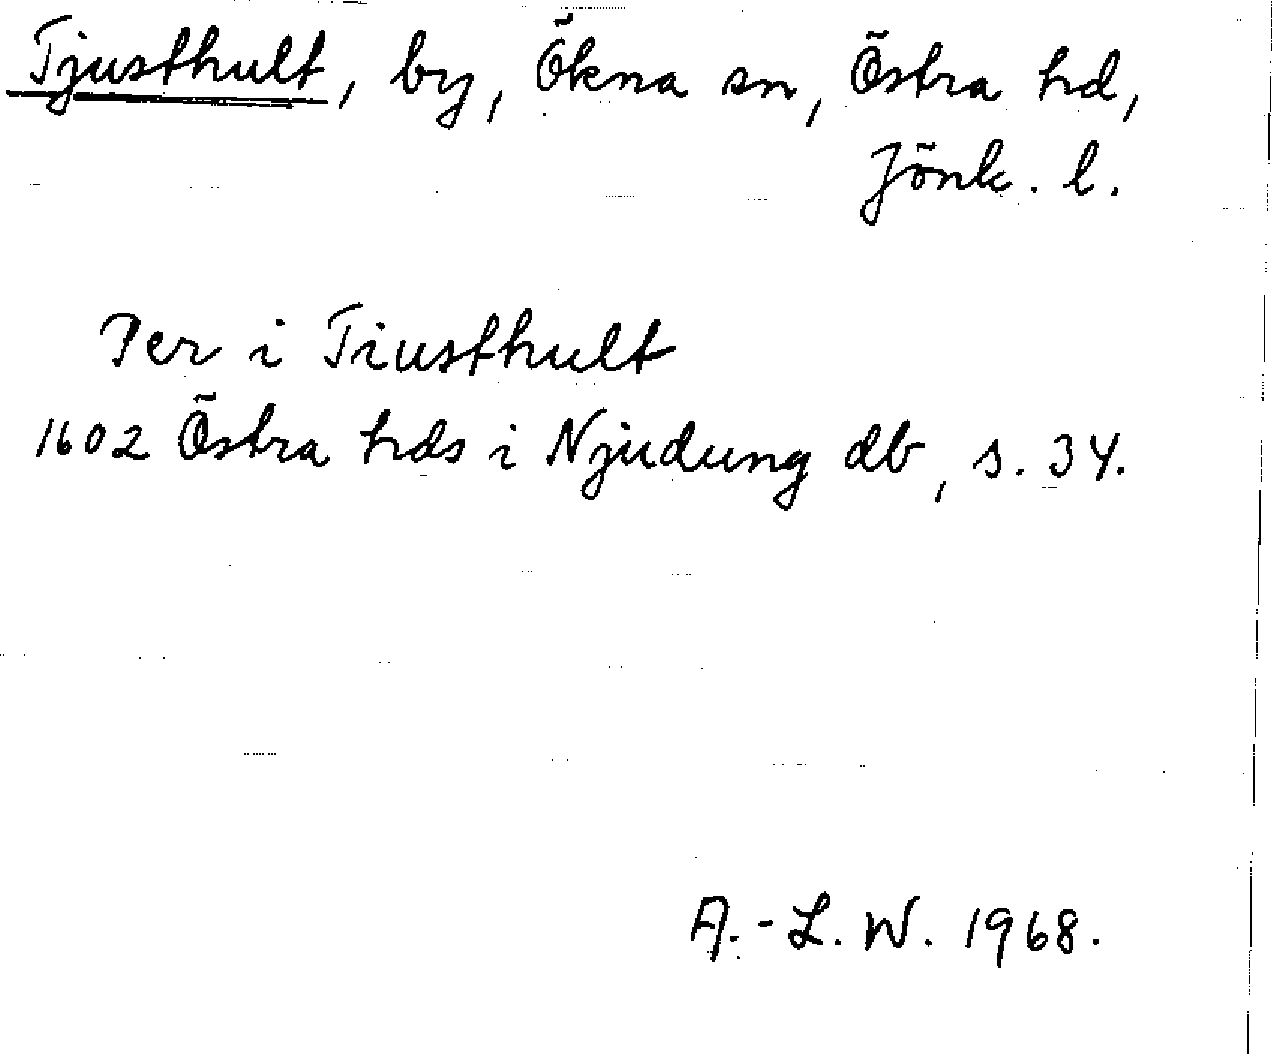 Tjusthult, by, Ökna sn, Östra hd,
Jönk. l.
Per i Tiusthult
1602 Östra hds i Njudung db, s. 34.
A.-L. W. 1968.